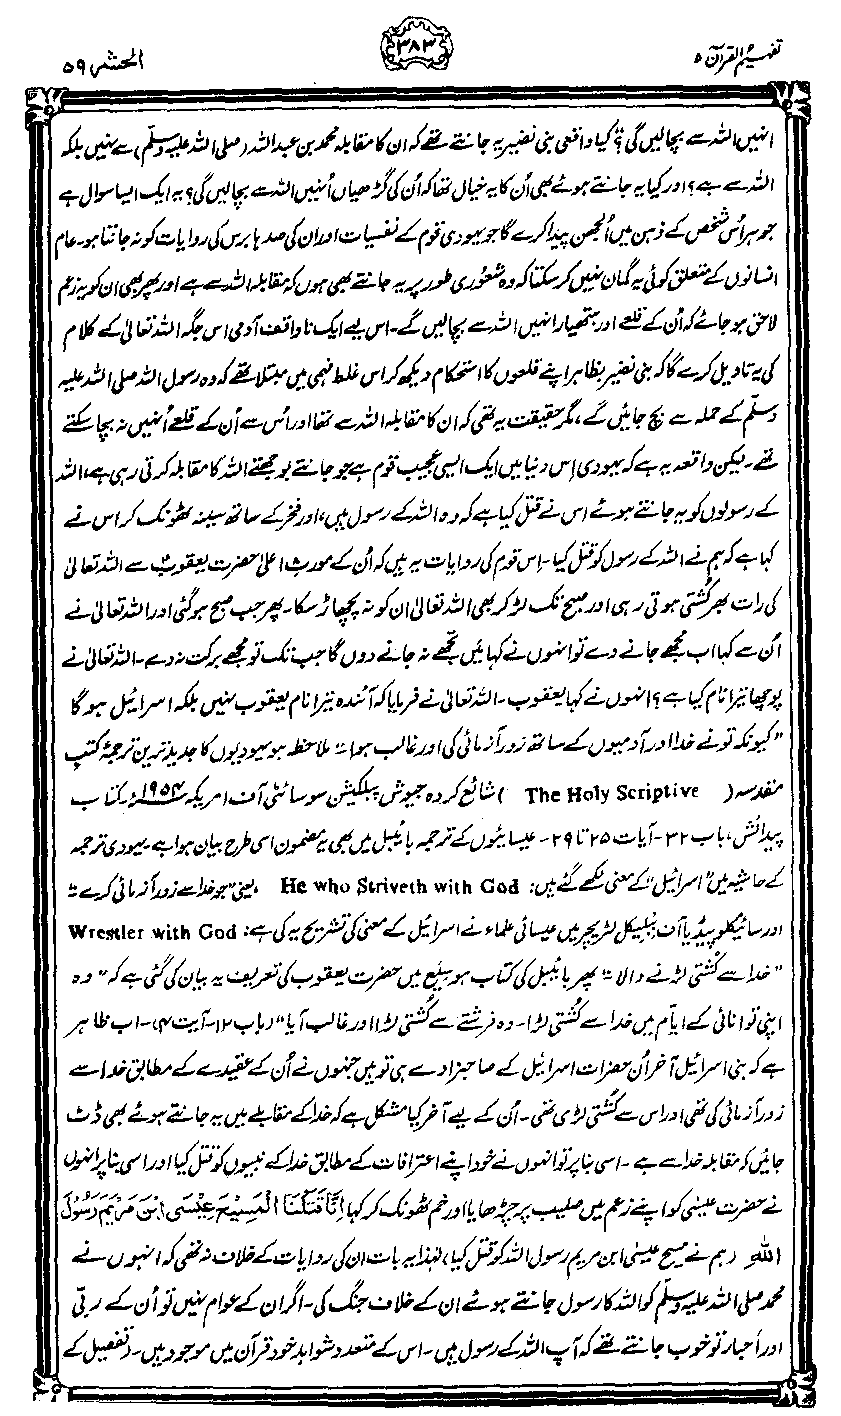 تفہیم القرآن ۵
۳۸۳
الحشر ۵۹
انہیں اللہ سے بچا لیں گی؟ کیا واقعی بنی نضیر یہ جانتے تھے کہ ان کا مقابلہ محمد بن عبداللہ (صلی اللہ علیہ وسلّم) سے نہیں بلکہ
اللہ سے ہے؟ اور کیا یہ جانتے ہوئے بھی اُن کا یہ خیال تھا کہ اُن کی گڑھیاں اُنہیں اللہ سے بچا لیں گی؟ یہ ایک ایسا سوال ہے
جو ہر اُس شخص کے ذہن میں اُلجھن پیدا کرے گا جو یہودی قوم کے نفسیات اور ان کی صدہا برس کی روایات کو نہ جانتا ہو۔ عام
انسانوں کے متعلق کوئی یہ گمان نہیں کر سکتا کہ وہ شعوری طور پر یہ جانتے بھی ہوں کہ مقابلہ اللہ سے ہے اور پھر بھی ان کو یہ زعم
لاحق ہو جائے کہ اُن کے قلعے اور ہتھیار انہیں اللہ سے بچا لیں گے۔ اس لیے ایک ناواقف آدمی اس جگہ اللہ تعالیٰ کے کلام
کی یہ تاویل کرے گا کہ بنی نضیر بظاہر اپنے قلعوں کا استحکام دیکھ کر اس غلط فہمی میں مبتلا تھے کہ وہ رسول اللہ صلی اللہ علیہ
وسلّم کے حملہ سے بچ جائیں گے، مگر حقیقت یہ تھی کہ ان کا مقابلہ اللہ سے تھا اور اُس سے اُن کے قلعے اُنہیں نہ بچا سکتے
تھے۔ لیکن واقعہ یہ ہے کہ یہودی اِس دنیا میں ایک ایسی عجیب قوم ہے جو جانتے بوجھتے اللہ کا مقابلہ کرتی رہی ہے، اللہ
کے رسولوں کو یہ جانتے ہوئے اس نے قتل کیا ہے کہ وہ اللہ کے رسول ہیں، اور فخر کے ساتھ سینہ ٹھونک کر اس نے
کہا ہے کہ ہم نے اللہ کے رسول کو قتل کیا۔ اِس قوم کی روایات یہ ہیں کہ اُن کے مورثِ اعلیٰ حضرت یعقوبؑ سے اللہ تعالیٰ
کی رات بھر کُشتی ہوتی رہی اور صبح تک لڑ کر بھی اللہ تعالیٰ ان کو نہ پچھاڑ سکا۔ پھر جب صبح ہو گئی اور اللہ تعالیٰ نے
اُن سے کہا اب مجھے جانے دے تو انہوں نے کہا میں تجھے نہ جانے دوں گا جب تک تو مجھے برکت نہ دے۔ اللہ تعالیٰ نے
پوچھا تیرا نام کیا ہے؟ انہوں نے کہا یعقوب۔ اللہ تعالیٰ نے فرمایا کہ آئندہ تیرا نام یعقوب نہیں بلکہ اسرائیل ہو گا
”کیونکہ تو نے خدا اور آدمیوں کے ساتھ زور آزمائی کی اور غالب ہوا“۔ ملاحظہ ہو یہودیوں کا جدید ترین ترجمۂ کتب
مقدسہ (The Holy Scriptive) شائع کردہ جیوش پبلکیشن سوسائٹی آف امریکہ ۱۹۵۴ء، کتاب
پیدائش، باب ۳۲۔ آیات ۲۵ تا ۲۹۔ عیسائیوں کے ترجمہ بائیبل میں بھی یہ مضمون اسی طرح بیان ہوا ہے۔ یہودی ترجمہ
کے حاشیہ میں ”اسرائیل“ کے معنی لکھے گئے ہیں: He who Striveth with God، یعنی ”جو خدا سے زور آزمائی کرے“۔
اور سائیکلوپیڈیا آف بیبلیکل لٹریچر میں عیسائی علماء نے اسرائیل کے معنی کی تشریح یہ کی ہے: Wrestler with God
”خدا سے کُشتی لڑنے والا“۔ پھر بائیبل کی کتاب ہوسیع میں حضرت یعقوب کی تعریف یہ بیان کی گئی ہے کہ ”وہ
اپنی توانائی کے ایام میں خدا سے کُشتی لڑا۔ وہ فرشتے سے کُشتی لڑا اور غالب آیا“ (باب ۱۲۔ آیت ۴)۔ اب ظاہر
ہے کہ بنی اسرائیل آخر اُن حضرات اسرائیل کے صاحبزادے ہی تو ہیں جنہوں نے اُن کے عقیدے کے مطابق خدا سے
زور آزمائی کی تھی اور اس سے کُشتی لڑی تھی۔ اُن کے لیے آخر کیا مشکل ہے کہ خدا کے مقابلے میں یہ جانتے ہوئے بھی ڈٹ
جائیں کہ مقابلہ خدا سے ہے۔ اسی بنا پر تو انہوں نے خود اپنے اعترافات کے مطابق خدا کے نبیوں کو قتل کیا اور اسی بنا پر انہوں
نے حضرت عیسٰی کو اپنے زعم میں صلیب پر چڑھایا اور خم ٹھونک کر کہا اِنَّا قَتَلْنَا الْمَسِيْحَ عِيْسَى ابْنَ مَرْيَمَ رَسُوْلَ
اللّٰهِ (ہم نے مسیح عیسٰی ابن مریم رسول اللہ کو قتل کیا)، لہٰذا یہ بات ان کی روایات کے خلاف نہ تھی کہ انہوں نے
محمد صلی اللہ علیہ وسلّم کو اللہ کا رسول جانتے ہوئے ان کے خلاف جنگ کی۔ اگر ان کے عوام نہیں تو اُن کے ربّی
اور اَحبار تو خوب جانتے تھے کہ آپ اللہ کے رسول ہیں۔ اس کے متعدد شواہد خود قرآن میں موجود ہیں۔ (تفصیل کے